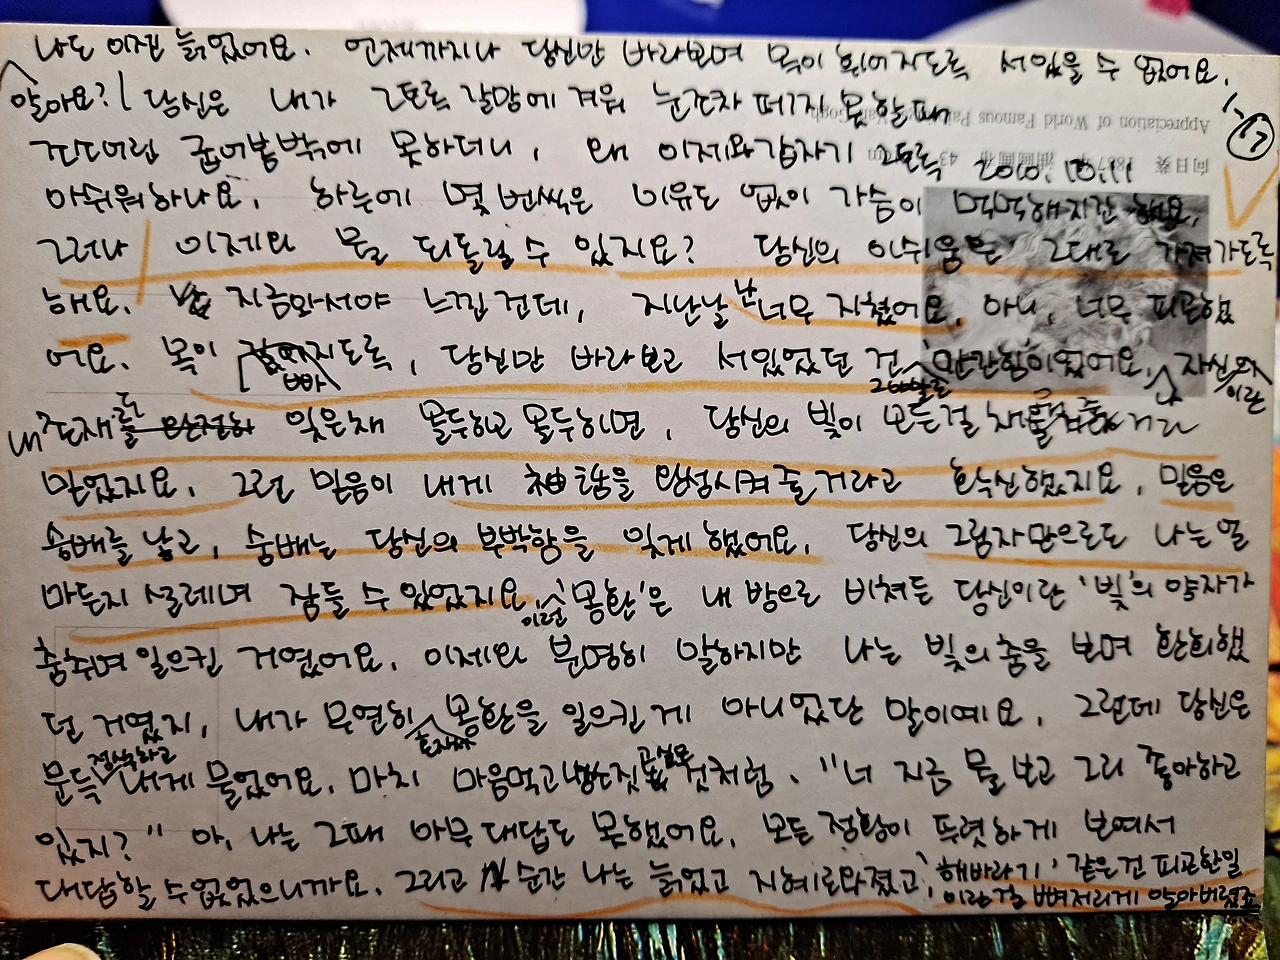 나도 이젠 늙었어요. 언제까지나 당신만 바라보며 목이 휘어지도록 서있을 수 없어요.
알아요? 당신은 내가 그토록 갈망에 겨워 눈조차 떼지 못할때
Appreciation of World Famous Paintings Van Gogh
1-⑰
건더러만 굽어봄밖에 못하더니, 왜 이제와 갑자기 그토록
2010. 10. 11
아쉬워하나요. 하루에 몇 번씩은 이유도 없이 가슴이 먹먹해지곤 해요.
그러나 이제와 뭘 되돌릴 수 있지요? 당신의 아쉬움은 그대로 가져가도록
해요. 지금와서야 느낀 건데, 지난날 난 너무 지쳤어요. 아니, 너무 피곤했
어요. 목이 빠지도록, 당신만 바라보고 서있었던 건 '만만함'이었어요. 자신이란
내 존재도 잊은채 몰두하고 몰두하면, 당신의 빛이 모든걸 채워줄 거라
믿었지요. 그런 믿음이 내게 神話을 완성시켜 줄 거라고 확신했지요. 믿음은
숭배를 낳고, 숭배는 당신의 부박함을 잊게 했어요. 당신의 그림자만으로도 나는 얼
마든지 설레며 잠들 수 있었지요. 이런 '몽환'은 내 방으로 비쳐든 당신이란 '빛'의 약자가
춤추며 일으킨 거였어요. 이제와 분명히 말하지만 나는 빛의 춤을 보며 환희했
던 거였지, 내가 우연히 혼자서 몽환을 일으킨 게 아니었단 말이예요. 그런데 당신은
문득 정색하고 내게 물었어요. 마치 마음먹고 것처럼. "너 지금 뭘 보고 그리 좋아하고
있지?" 아, 나는 그때 아무 대답도 못했어요. 모든 정황이 뚜렷하게 보여서
대답할 수 없었으니까요. 그리고 순간 나는 늙었고 지혜로와졌고, '해바라기' 같은건 피곤한일
이란걸 뼈저리게 알아버렸죠